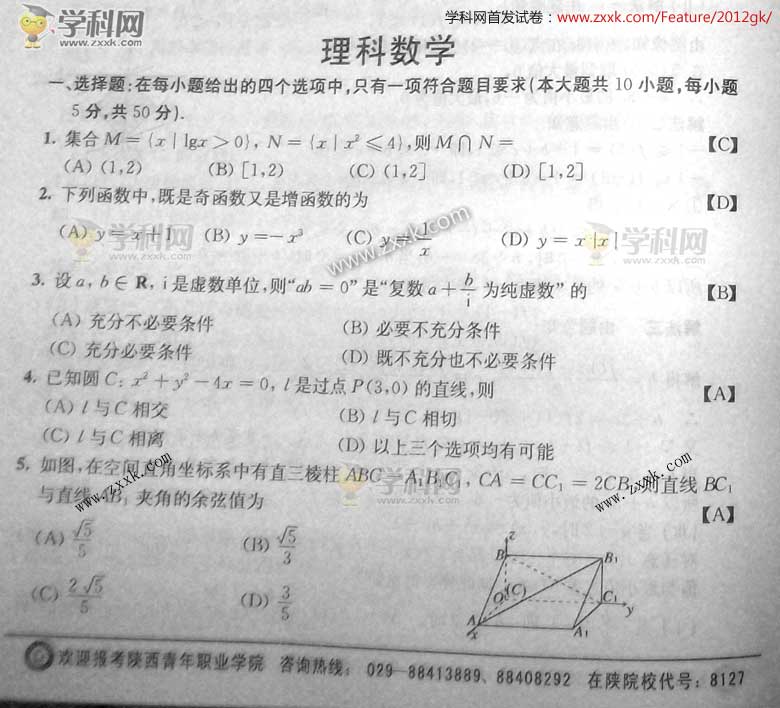 学科网首发试卷：www.zxxk.com/Feature/2012gk/
学科网
www.zxxk.com
理科数学
一、选择题:在每小题给出的四个选项中,只有一项符合题目要求(本大题共 10 小题,每小题
5 分,共 50 分).
1. 集合 M = {x | lgx > 0}, N = {x | x² ⩽ 4},则 M ∩ N = 【C】
(A) (1,2) (B) [1,2) (C) (1,2] (D) [1,2]
2. 下列函数中,既是奇函数又是增函数的为 【D】
(A) y = x + 1 (B) y = − x³ (C) y = 1/x (D) y = x |x|
学科网
zxxk.com
www.zxxk.com
学科网
zxxk.com
3. 设 a, b ∈ R, i 是虚数单位,则“ab = 0”是“复数 a + b/i 为纯虚数”的 【B】
(A) 充分不必要条件 (B) 必要不充分条件
(C) 充分必要条件 (D) 既不充分也不必要条件
4. 已知圆 C: x² + y² − 4x = 0, l 是过点 P(3,0) 的直线,则 【A】
(A) l 与 C 相交 (B) l 与 C 相切
(C) l 与 C 相离 (D) 以上三个选项均有可能
5. 如图,在空间直角坐标系中有直三棱柱 ABC − A₁B₁C₁, CA = CC₁ = 2CB,则直线 BC₁
与直线 AB₁ 夹角的余弦值为 【A】
www.zxxk.com
学科网
zxxk.com
www.zxxk.com
(A) √5/5 (B) √5/3
(C) 2√5/5 (D) 3/5
z
B B₁
O (C) C₁ y
A
x A₁
欢迎报考陕西青年职业学院 咨询热线: 029—88413889、88408292 在陕院校代号: 8127